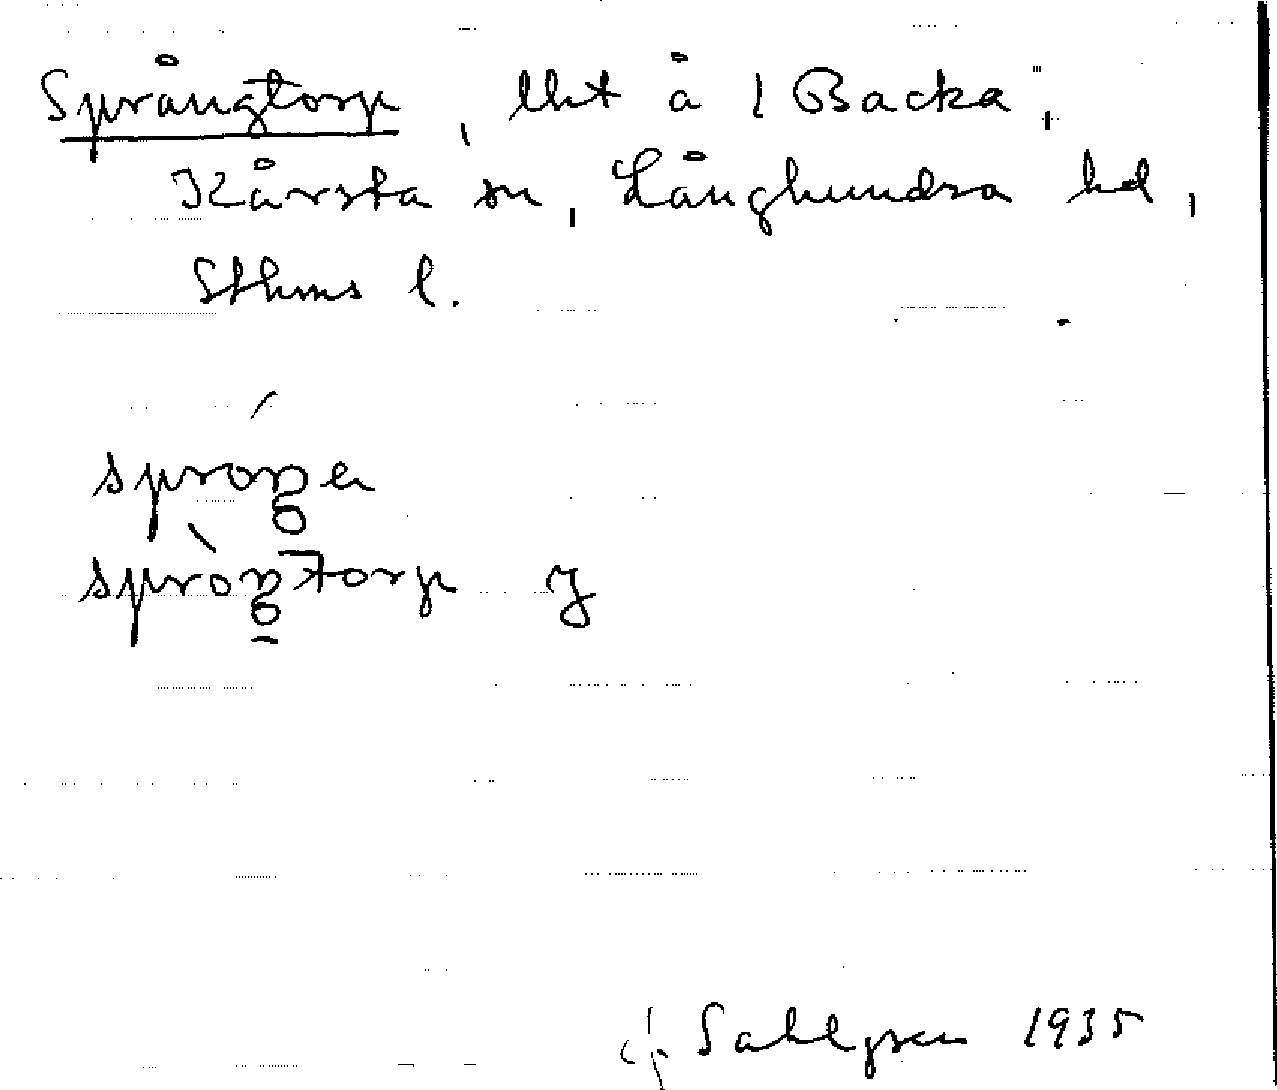 Språngtorp, lht å 1 Backa,
Kårsta sn, Långhundra hd,
Sthms l.
J. Sahlgren 1935